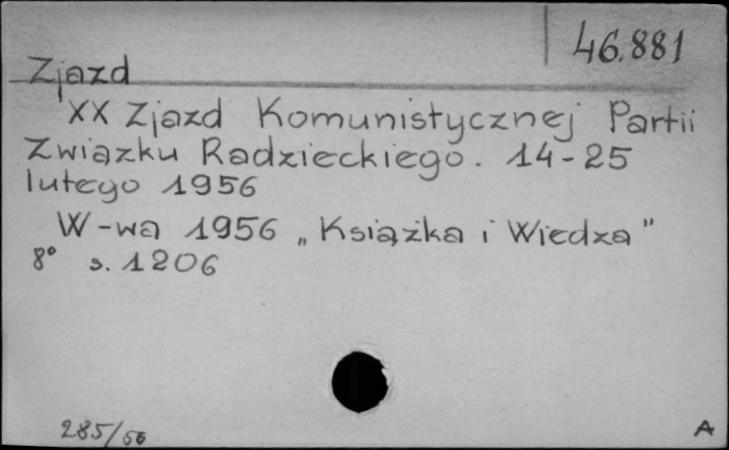 46.881
Zjazd
XX Zjazd Komunistycznej Partii
Związku Radzieckiego. 14-25
lutego 1956
W-wa 1956 „Książka i Wiedza"
8° s. 1206
285/56
A